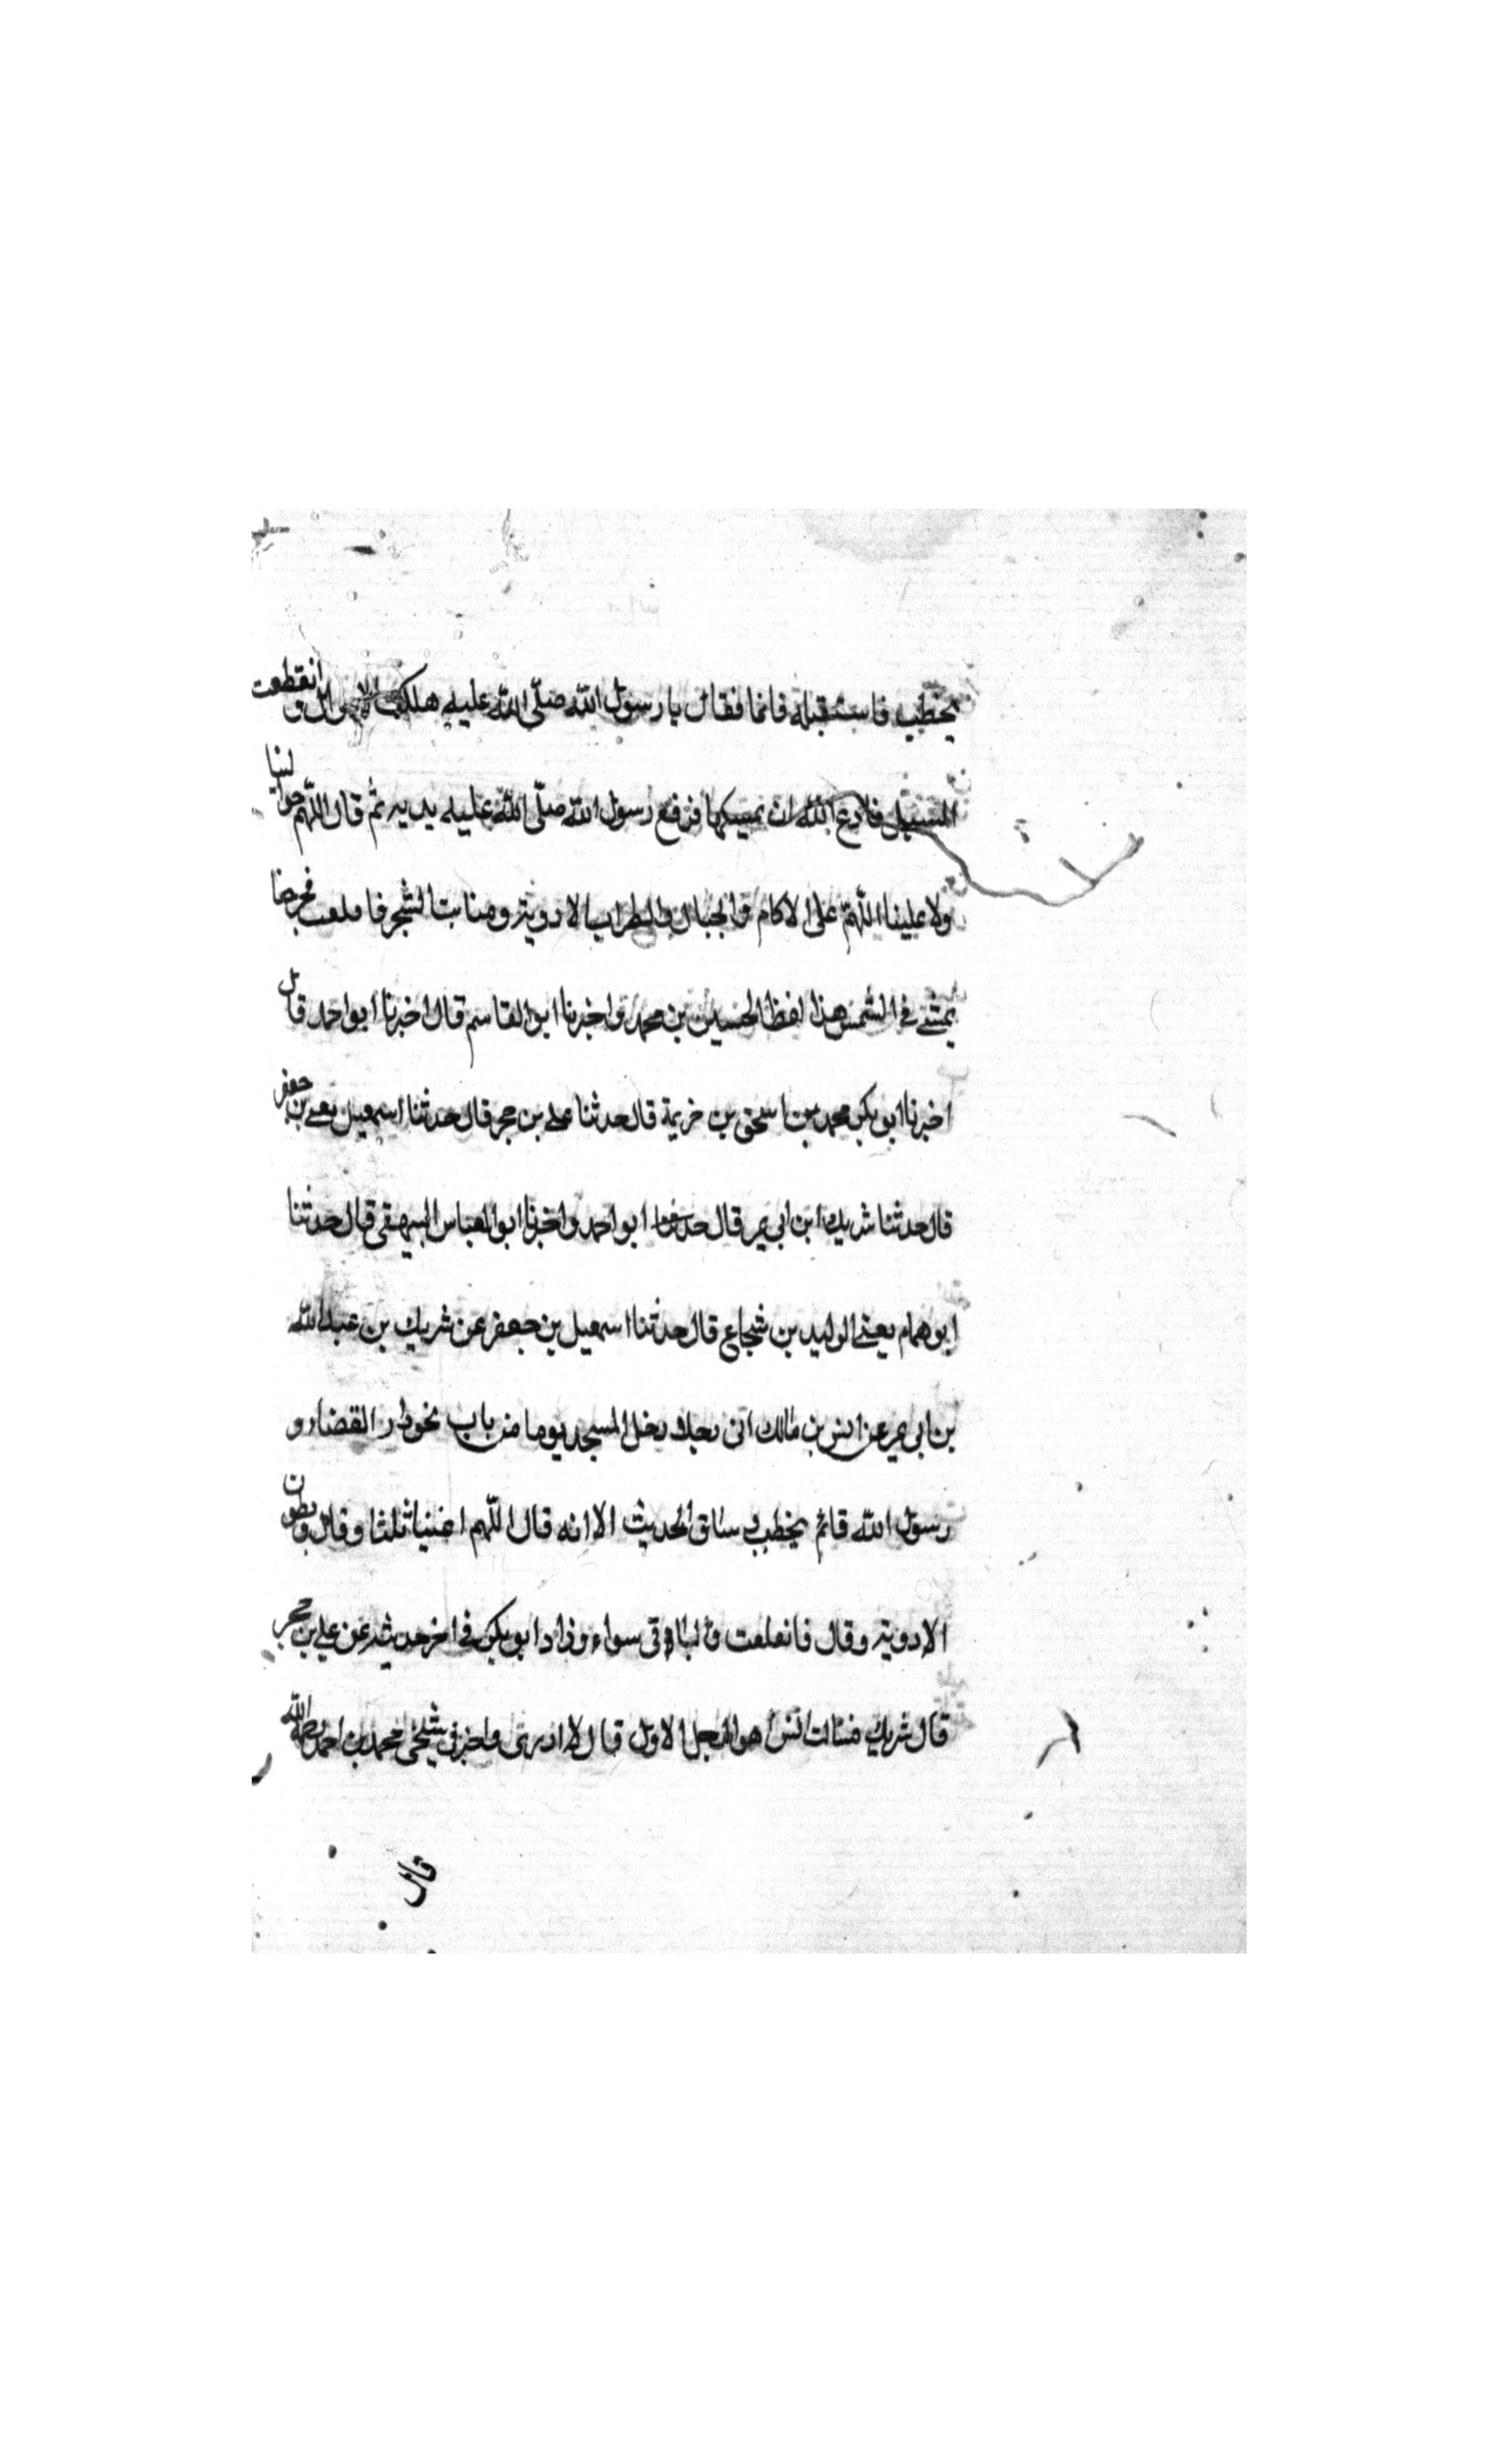 يخطب فاستقبله قائما فقال يا رسول الله صلّى الله عليه هلكت الاموال و انقطعت
السبيل فادع الله ان يمسكها فرفع رسول الله صلّى الله عليه يديه ثم قال اللّهم حوالينا
ولا علينا اللّهمّ على الاكام والجبال والظراب الادوية ومنابت الشجر فاقلعت فخرجنا
يمشي في الشمس هذا لفظ الحسين بن محمد واخبرنا ابو القاسم قال اخبرنا ابو احمد قال
اخبرنا ابو بكر محمد بن اسحق بن خزيمة قال حدثنا علي بن حجر قال حدثنا اسمعيل يعني بن جعفر
قال حدثنا شريك ابن ابي نمر قال حدثنا ابو احمد واخبرنا ابو العباس البيهقي قال حدثنا
ابو همام يعني الوليد بن شجاع قال حدثنا اسمعيل بن جعفر عن شريك بن عبد الله
بن ابي نمر عن انس بن مالك ان رجلا دخل المسجد يوما من باب نحو دار القضاء و
رسول الله قائم يخطب و ساق الحديث الا انه قال اللّهم اغثنا ثلثا وقال وبطون
الادوية وقال فانقلعت والباقي سواء وزاد ابو بكر في اخر حديثه عن علي بن حجر
قال شريك فسئالت انس اهو الرجل الاول قال لا ادري واخبرني شيخي محمد بن احمد رحمه الله
قال